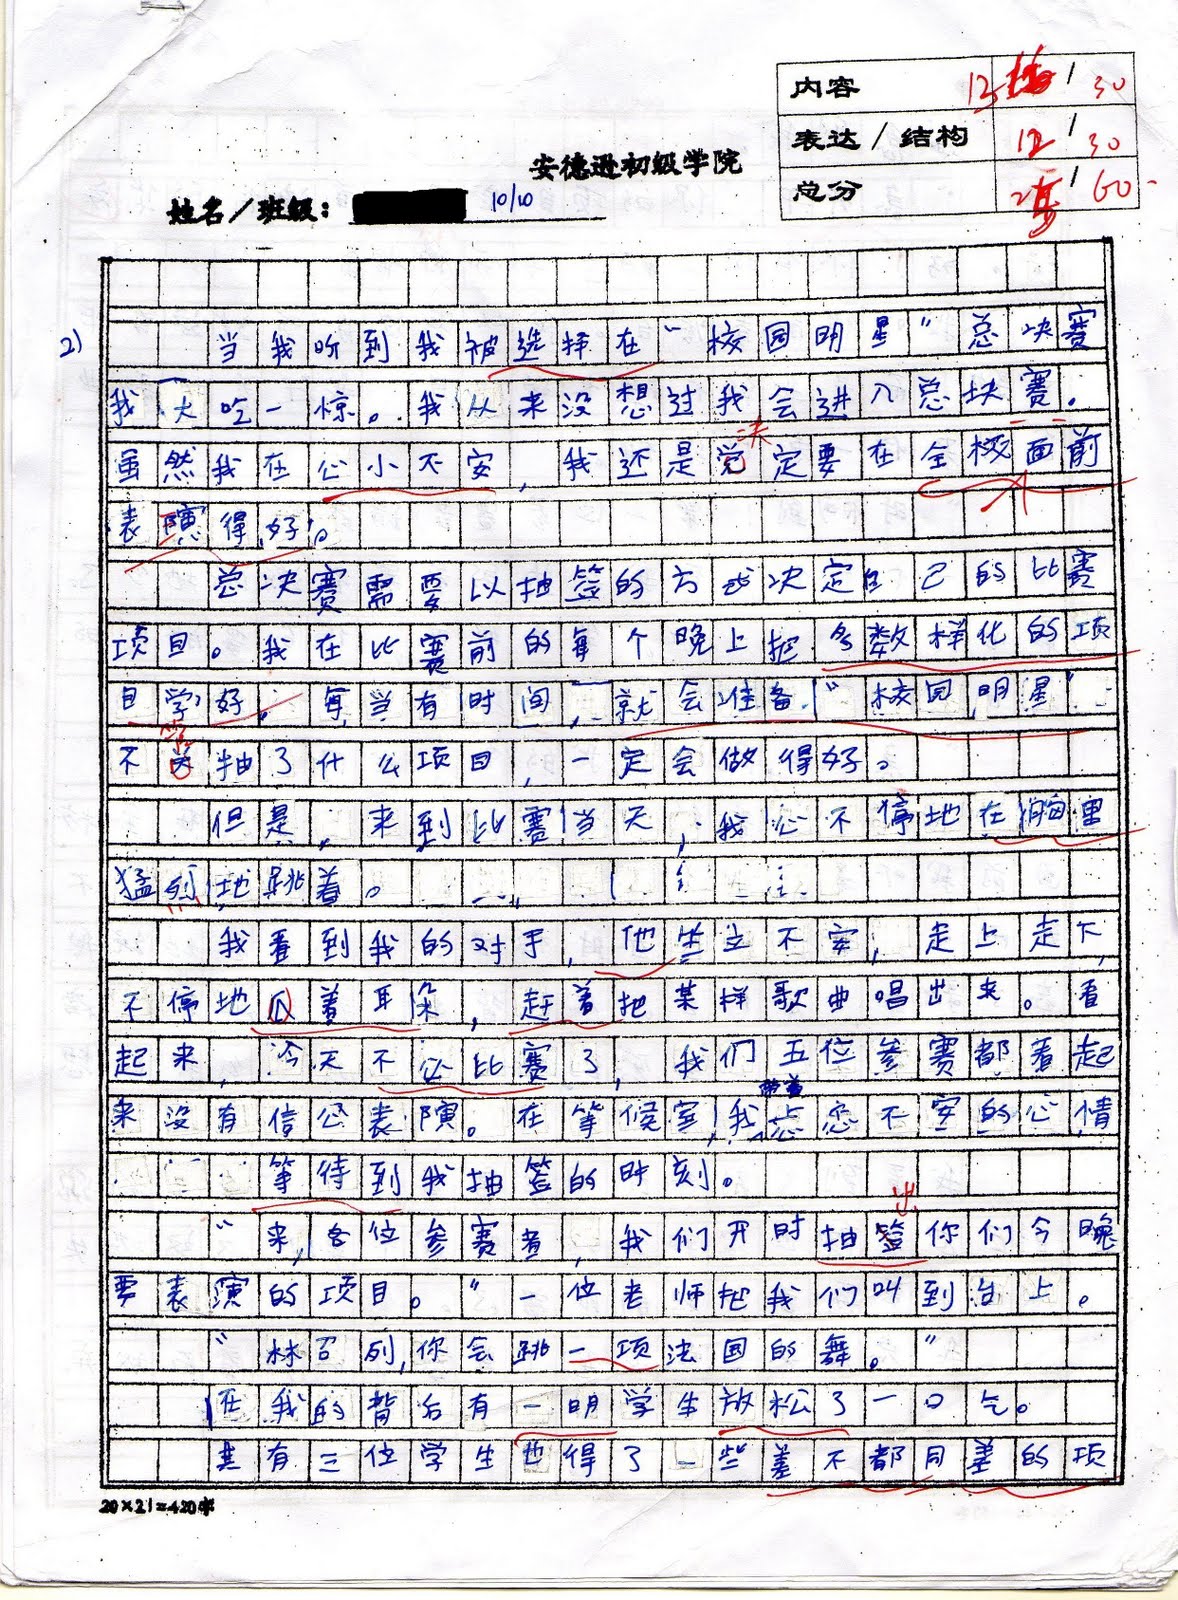 内容 13 / 30
表达 / 结构 12 / 30
总分 25 / 60
安德逊初级学院
姓名／班级： 10/10
2) 当我听到我被选择在“校园明星”总决赛
我大吃一惊。我从来没想过我会进入总块赛。
虽然我在心小不安，我还是觉定要在全校面前
决
表演得好。
总决赛需要以抽签的方式决定自己的比赛
项目。我在比赛前的每个晚上把多数样化的项
目学好。每当有时间，就会准备“校园明星”
不关抽了什么项目，一定会做得好。
管
但是，来到比赛当天，我心不停地在胸里
猛烈地跳着。
我看到我的对手，他坐立不安，走上走下，
不停地瓜着耳朵，赶着把某样歌曲唱出来。看
起来，今天不必比赛了，我们五位参赛都看起
来没有信心表演。在等候室，我带着忐忑不安的心情
等待到我抽签的时刻。
出
“来，各位参赛者，我们开时抽签你们今晚
要表演的项目。”一位老师把我们叫到台上。
“林召列，你会跳一项法国的舞。”
在我的背后有一明学生放松了一口气。
其有三位学生也得了一些差不都同差的项
20×21=420字